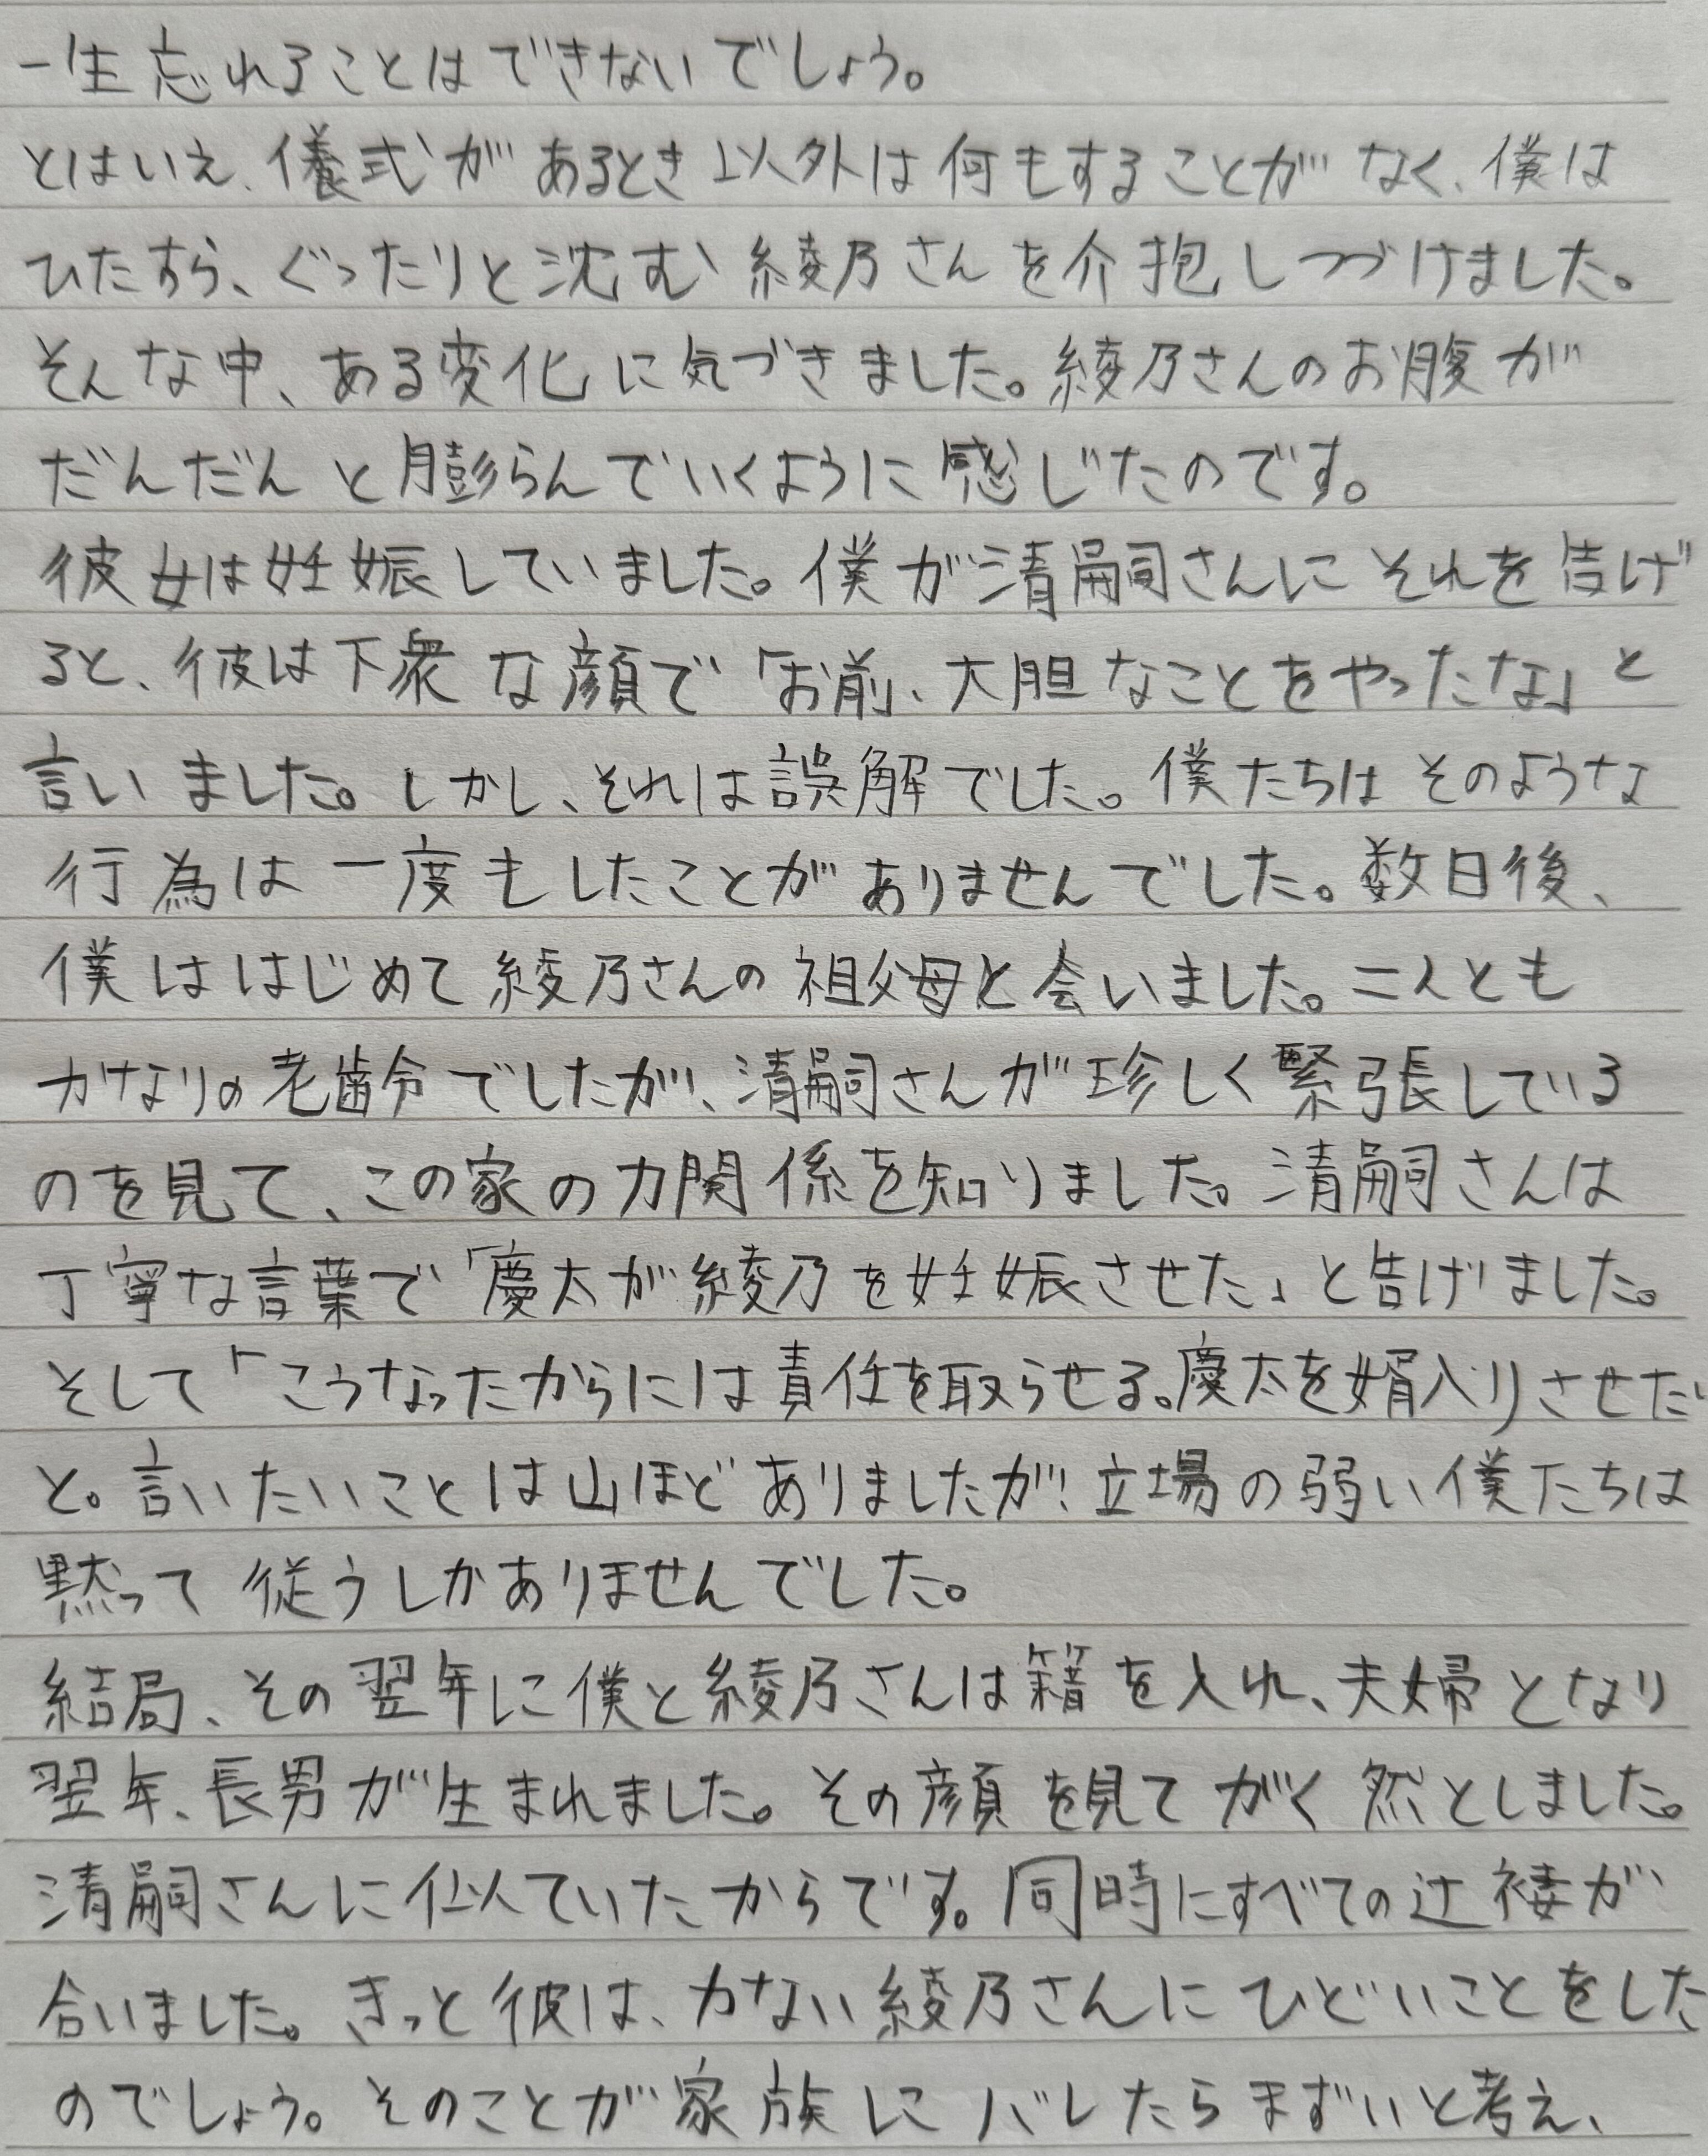 一生忘れることはできないでしょう。
とはいえ、儀式があるとき以外は何もすることがなく、僕は
ひたすら、ぐったりと沈む綾乃さんを介抱しつづけました。
そんな中、ある変化に気づきました。綾乃さんのお腹が
だんだんと膨らんでいくように感じたのです。
彼女は妊娠していました。僕が清嗣さんにそれを告げ
ると、彼は下衆な顔で「お前、大胆なことをやったな」と
言いました。しかし、それは誤解でした。僕たちはそのような
行為は一度もしたことがありませんでした。数日後、
僕ははじめて綾乃さんの祖父母と会いました。二人とも
かなりの老齢でしたが、清嗣さんが珍しく緊張している
のを見て、この家の力関係を知りました。清嗣さんは
丁寧な言葉で「慶太が綾乃を妊娠させた」と告げました。
そして「こうなったからには責任を取らせる。慶太を婿入りさせたい
と。言いたいことは山ほどありましたが、立場の弱い僕たちは
黙って従うしかありませんでした。
結局、その翌年に僕と綾乃さんは籍を入れ、夫婦となり
翌年、長男が生まれました。その顔を見てがく然としました。
清嗣さんに似ていたからです。同時にすべての辻褄が
合いました。きっと彼は、力ない綾乃さんにひどいことをした
のでしょう。そのことが家族にバレたらまずいと考え、